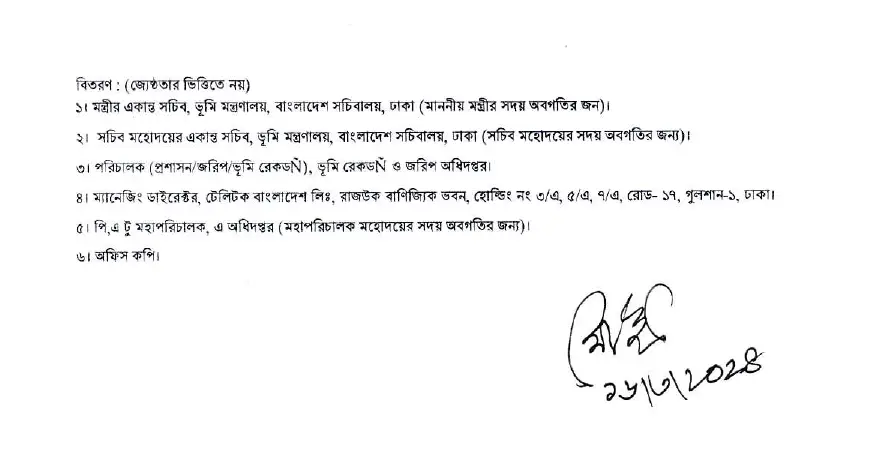 বিতরণ : (জ্যেষ্ঠতার ভিত্তিতে নয়)
১। মন্ত্রীর একান্ত সচিব, ভূমি মন্ত্রণালয়, বাংলাদেশ সচিবালয়, ঢাকা (মাননীয় মন্ত্রীর সদয় অবগতির জন)।
২। সচিব মহোদয়ের একান্ত সচিব, ভূমি মন্ত্রণালয়, বাংলাদেশ সচিবালয়, ঢাকা (সচিব মহোদয়ের সদয় অবগতির জন্য)।
৩। পরিচালক (প্রশাসন/জরিপ/ভূমি রেকডÑ), ভূমি রেকডÑ ও জরিপ অধিদপ্তর।
৪। ম্যানেজিং ডাইরেক্টর, টেলিটক বাংলাদেশ লিঃ, রাজউক বাণিজ্যিক ভবন, হোল্ডিং নং ৩/এ, ৫/এ, ৭/এ, রোড- ১৭, গুলশান-১, ঢাকা।
৫। পি,এ টু মহাপরিচালক, এ অধিদপ্তর (মহাপরিচালক মহোদয়ের সদয় অবগতির জন্য)।
৬। অফিস কপি।
১৬/৩/২০২৪